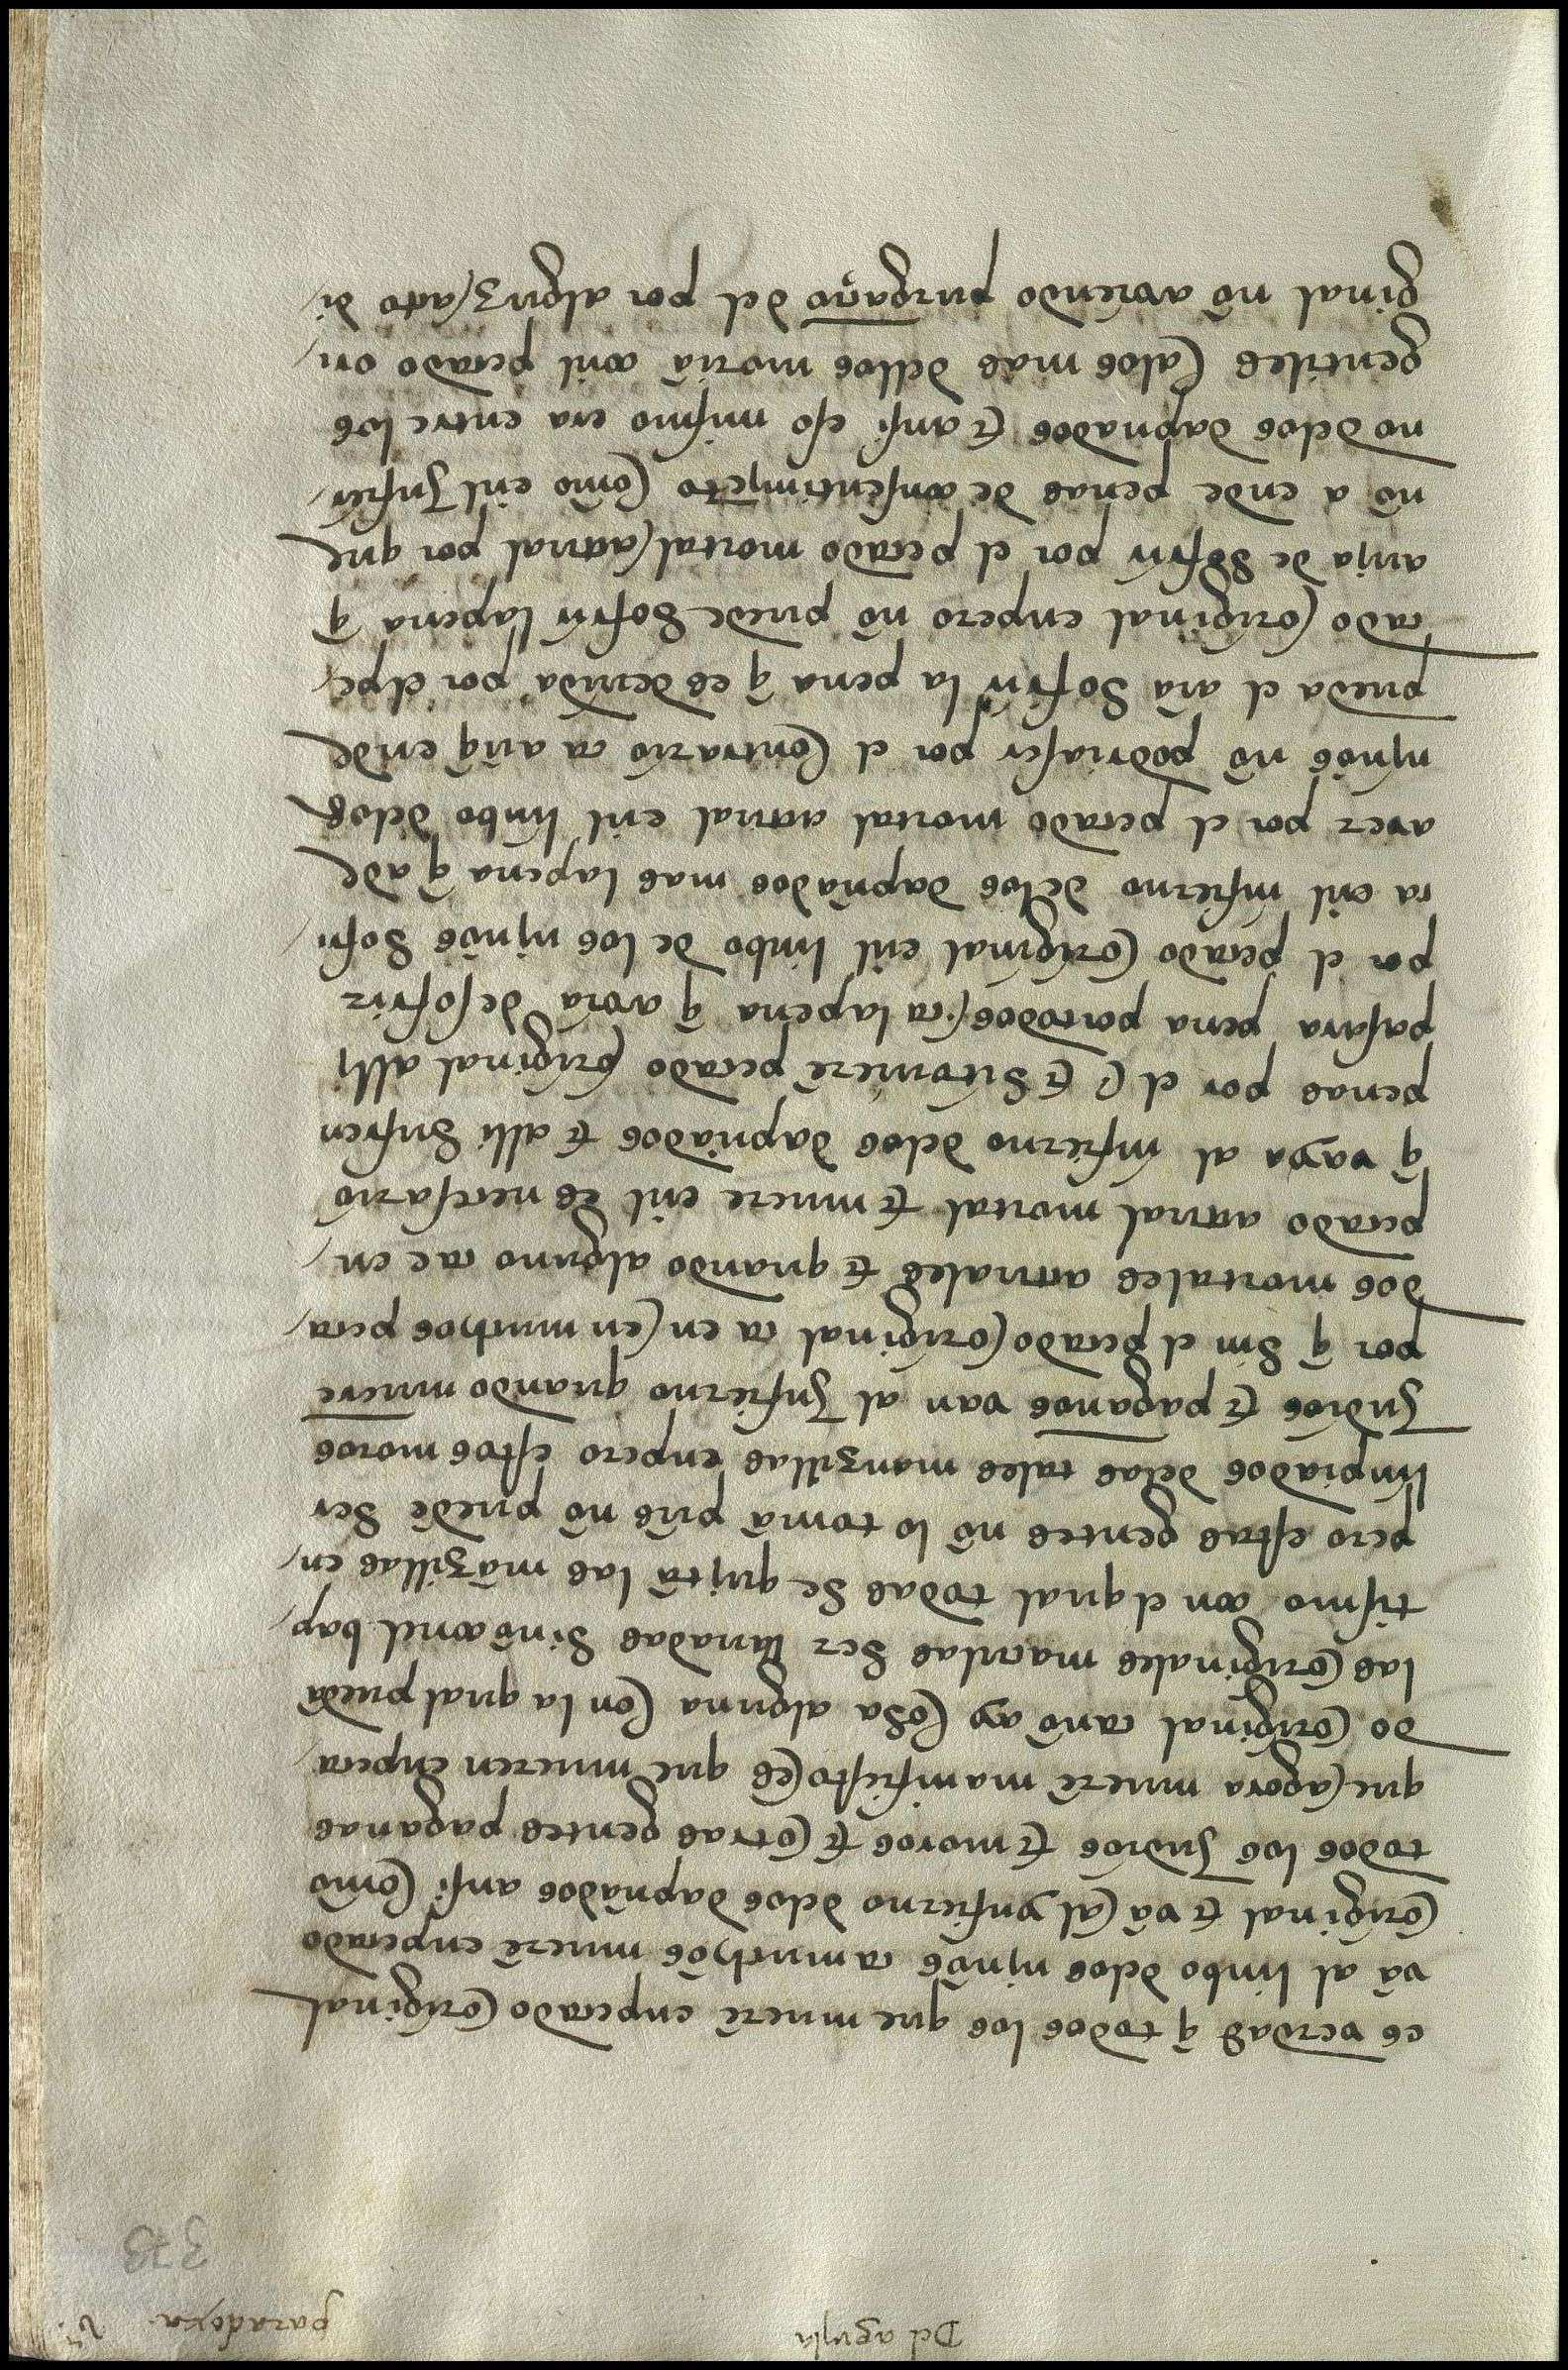 Del aguila
paradoxa. 2ª.
373
es verdad q̃ todos los que muerẽ enpecado original
vã al linbo delos njños ca muchos muerẽ enpecado
original & vã al ynfierno delos dapñados ansi como
todos los Judios & moros & otras gentes paganas
que agora muerẽ manifiesto es que mueren enpeca
do original ca nõ ay cosa alguna con la qual puedã
las originales maculas ser lauadas sinõ conel bap
tismo con elqual todas se quitã las mãzillas en
pero estas gentes nõ lo tomã pues nõ puedẽ ser
linpiados delas tales manzillas enpero estos moros
Judios & paganos van al Infierno quando mueren
por q̃ sin el pecado original caen en muchos peca
dos mortales actuales & quando alguno cae en
pecado actual mortal & muere enl es necesario
q̃ vaya al infierno delos dapñados & alli sufren
penas por el & si touierẽ pecado original alli
pasara pena por todos ca la pena q̃ avia de sofrir
por el pecado original enl linbo de los njños sofri
ra enl infierno delos dapñados mas la pena q̃ a de
aver por el pecado mortal actual enl linbo delos
njños nõ podria ser por el contrario ca añq̃ ende
pueda el aĩa sofrir la pena q̃ es deuida por el pe
cado original enpero nõ puede sofrir la pena q̃
auja de sofrir por el pecado mortal actual por que
nõ a ende penas de consentimjẽto como enl Infier
no delos dapñados & ansi eso mismo era entre los
gentiles ca los mas dellos moriã conl pecado ori
ginal nõ aviendo purgaçiõ del por algũ acto di